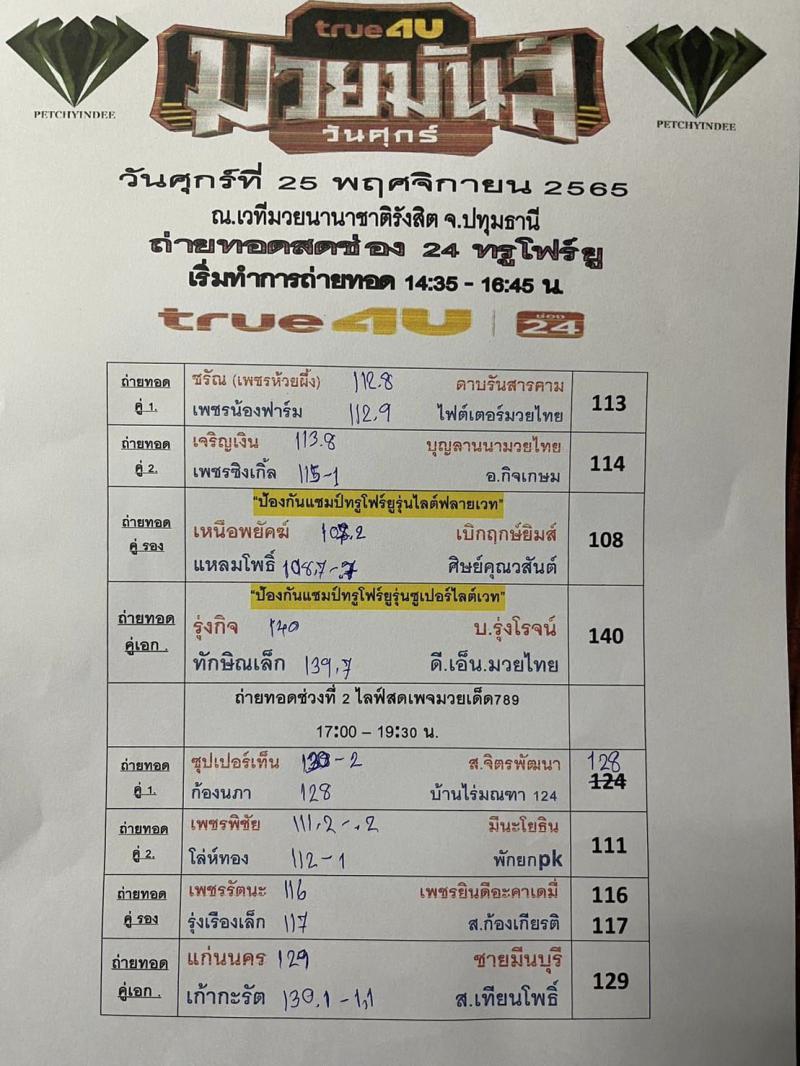 true4U
มวยมันส์
วันศุกร์
PETCHYINDEE
PETCHYINDEE
วันศุกร์ที่ 25 พฤศจิกายน 2565
ณ.เวทีมวยนานาชาติรังสิต จ.ปทุมธานี
ถ่ายทอดสดช่อง 24 ทรูโฟร์ยู
เริ่มทำการถ่ายทอด 14:35 - 16:45 น.
true4U ช่อง 24
ถ่ายทอด คู่ 1. ชรัณ (เพชรห้วยผึ้ง) 112.8 ดาบรันสารคาม 113
เพชรน้องฟาร์ม 112.9 ไฟต์เตอร์มวยไทย
ถ่ายทอด คู่ 2. เจริญเงิน 113.8 บุญลานนามวยไทย 114
เพชรซิงเกิ้ล 115-1 อ.กิจเกษม
"ป้องกันแชมป์ทรูโฟร์ยูรุ่นไลต์ฟลายเวท"
ถ่ายทอด คู่ รอง เหนือพยัคฆ์ เบิกฤกษ์ยิมส์ 108
แหลมโพธิ์ 108.7- ศิษย์คุณวสันต์
"ป้องกันแชมป์ทรูโฟร์ยูรุ่นซูเปอร์ไลต์เวท"
ถ่ายทอด คู่เอก . รุ่งกิจ 140 บ.รุ่งโรจน์ 140
ทักษิณเล็ก 139.7 ดี.เอ็น.มวยไทย
ถ่ายทอดช่วงที่ 2 ไลฟ์สดเพจมวยเด็ด789
17:00 – 19:30 น.
ถ่ายทอด คู่ 1. ซุปเปอร์เท็น -2 ส.จิตรพัฒนา 128
ก้องนภา 128 บ้านไร่มณฑา 124 124
ถ่ายทอด คู่ 2. เพชรพิชัย 111.2-.2 มีนะโยธิน 111
โล่ห์ทอง 112-1 พักยกpk
ถ่ายทอด คู่ รอง เพชรรัตนะ 116 เพชรยินดีอะคาเดมี่ 116
รุ่งเรืองเล็ก 117 ส.ก้องเกียรติ 117
ถ่ายทอด คู่เอก . แก่นนคร 129 ชายมีนบุรี 129
เก้ากะรัต 130.1-1.1 ส.เทียนโพธิ์